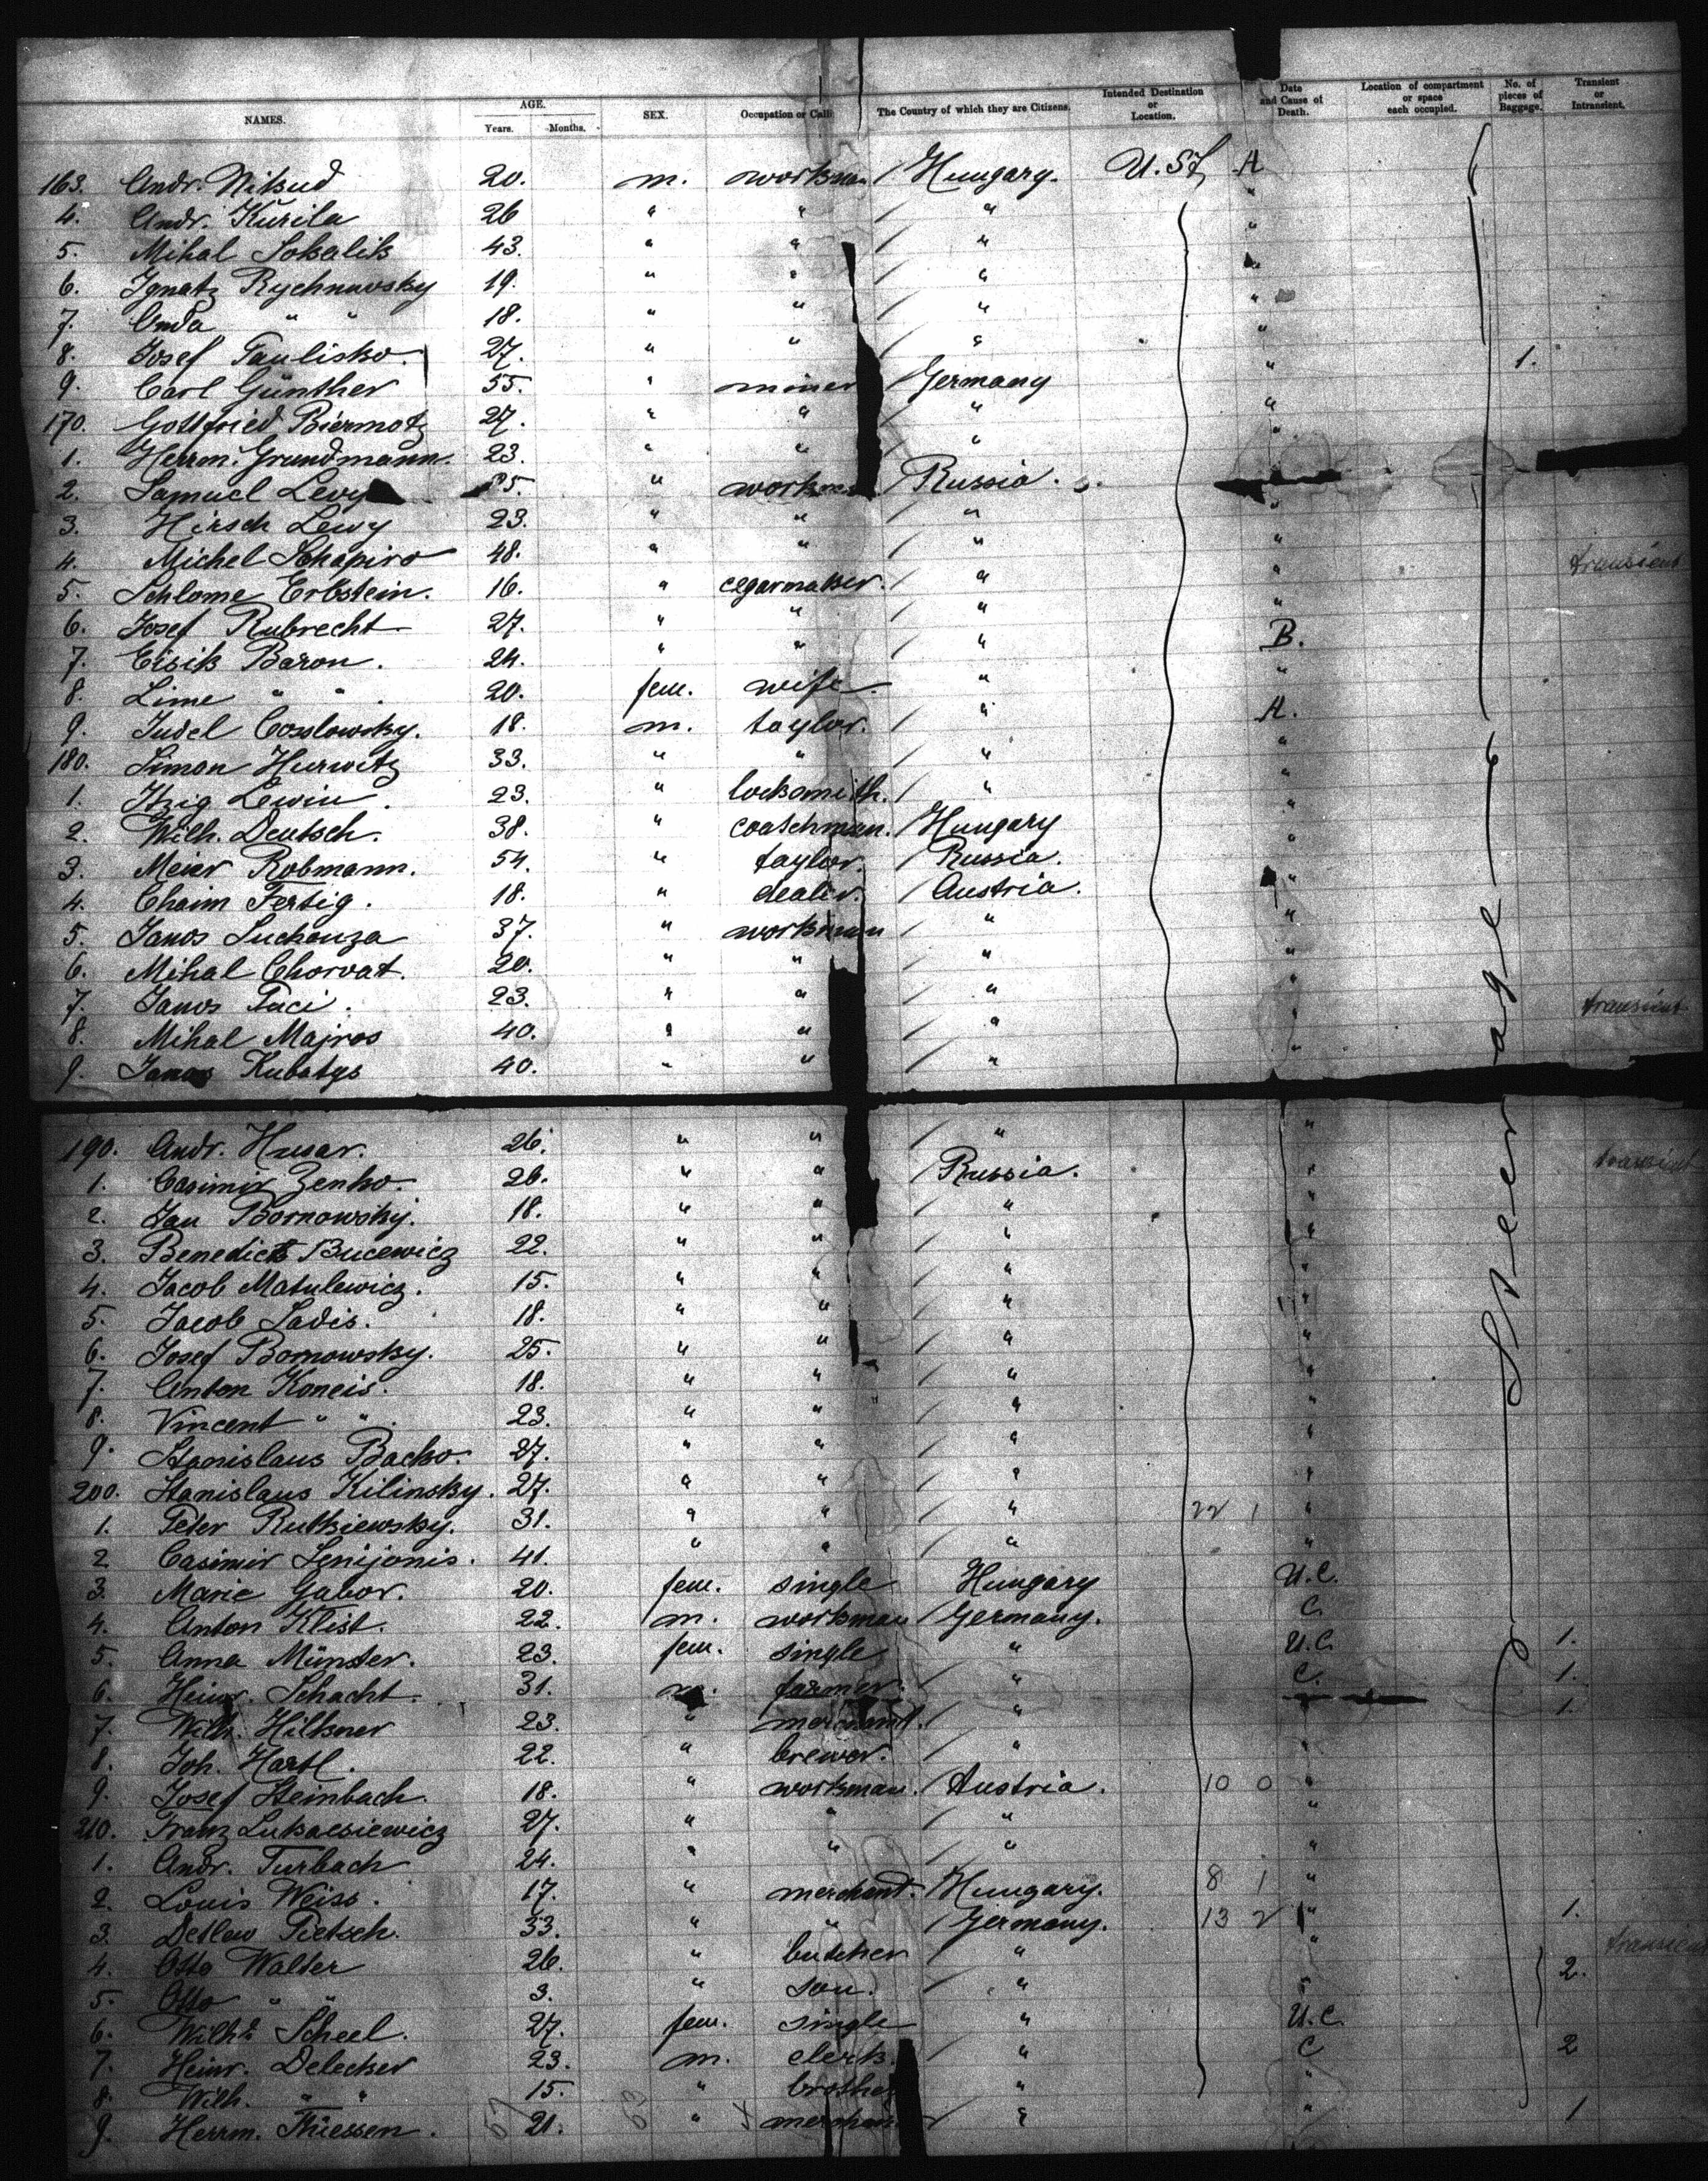 NAMES. AGE. Years. Months. SEX. Occupation or Calli The Country of which they are Citizens. Intended Destination or Location. Date and Cause of Death. Location of compartment or space each occupied. No. of pieces of Baggage. Transient or Intransient.
163. Andr. Nitsud 20. m. workman / Hungary. U.St. A
4. Andr. Kurila 26 " " / " "
5. Mihal Sokalik 43. " " / " "
6. Ignatz Rychnawsky 19. " " / " "
7. Onda " " 18. " " / " "
8. Josef Paulisko 27. " " / " "
9. Carl Günther 55. " miner / Germany " 1.
170. Gottfried Biermotz 27. " " / " "
1. Herrm. Grundmann. 23. " " / " "
2. Samuel Levy " workman Russia.
3. Hirsch Lewy 23. " " / " "
4. Michel Schapiro 48. " " / " "
5. Schlome Erbstein. 16. " cegarmaker. / " " transient
6. Josef Rubrecht 27. " " / " "
7. Eisik Baron. 24. " " / " B.
8. Lime " " 20. fem. wife. " "
9. Judel Cosslowsky. 18. m. taylor. / " A.
180. Simon Hurwitz 33. " " / " "
1. Itzig Lewin. 23. " locksmith. / " "
2. Wilh. Deutsch. 38. " coatchman. / Hungary "
3. Meier Robmann. 54. " taylor. / Russia. "
4. Chaim Fersig. 18. " dealer. / Austria. "
5. Janos Suchanza 37. " workman / " "
6. Mihal Chorvat. 20. " " / " "
7. Janos Paci. 23. " " / " "
8. Mihal Majros 40. " " / " " transient
9. Janos Kubatys 40. " " / " "
190. Andr. Husar. 26. " " / " "
1. Casimir Zenko. 26. " " / Russia. " transient
2. Jan Bornowsky. 18. " " / " "
3. Benedict Bucewicz 22. " " / " "
4. Jacob Matulewicz. 15. " " / " "
5. Jacob Sadis. 18. " " / " "
6. Josef Bornowsky. 25. " " / " "
7. Anton Koneis. 18. " " / " "
8. Vincent " " 23. " " / " "
9. Stanislaus Backo. 27. " " / " "
200. Stanislaus Kilinsky. 27. " " / " "
1. Peter Rutkiewsky. 31. " " / " 22 1 "
2. Casimir Senijonis. 41. " " / " "
3. Marie Gabor. 20. fem. single Hungary U.C.
4. Anton Klist. 22. m. workman / Germany. C.
5. Anna Münster. 23. fem. single / " U.C. 1.
6. Heinr. Schacht. 31. m. farmer. / " C. 1.
7. Wilh. Hilkner 23. " merchant. / " 1.
8. Joh. Hartl. 22. " brewer. / " "
9. Josef Steinbach. 18. " workman. / Austria. 10 0 "
210. Franz Lukaesiewicz 27. " " / " "
1. Andr. Turbach 24. " " / " "
2. Louis Weiss. 17. " merchant. / Hungary. 8 1 "
3. Detlew Pietsch. 33. " " / Germany. 13 2 " 1.
4. Otto Walter 26. " butcher / " " transient
5. Otto " " 3. " son. / " " 2.
6. Wilh. Scheel. 27. fem. single " U.C.
7. Heinr. Delecker 23. m. clerk. / " C 2
8. Wilh. " " 15. " brother " "
9. Herrm. Thiessen. 21. " merchan " " 1
Steerage